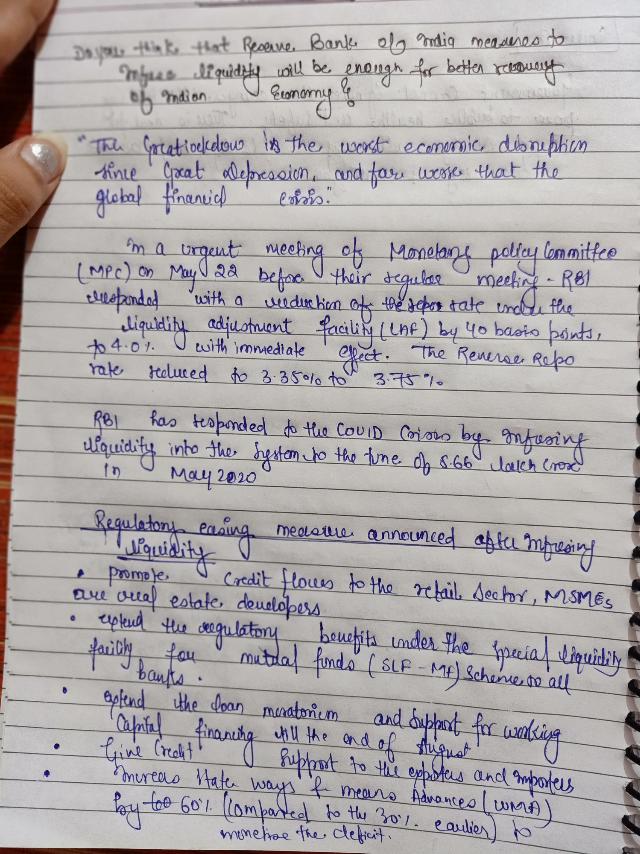 Do you think that Reserve Bank of India measures to
infuse liquidity will be enough for better recovery
of Indian Economy?
"The Great lockdow is the worst economic disruption
since Great Depression, and far worse that the
global financial crisis."
In a urgent meeting of Monetary policy Committee
(MPC) on May 22 before their regular meeting - RBI
responded with a reduction of the repo rate under the
liquidity adjustment facility (LAF) by 40 basis points,
to 4.0% with immediate effect. The Reverse Repo
rate reduced to 3.35% to 3.75%
RBI has responded to the COVID Crisis by infusing
liquidity into the system to the tune of 5.66 lakh crore
in May 2020
Regulatory easing measure announced after infusing
liquidity
• promote credit flows to the retail sector, MSMEs
are real estate developers
• extend the regulatory benefits under the special liquidity
facility for mutual funds (SLF-MF) scheme to all
banks.
• extend the loan moratorium and support for working
Capital financing till the end of August
• Give Credit support to the exporters and importers
• increas state ways & means Advances (WMA)
by 60% (compared to the 30% earlier) to
monetise the deficit.